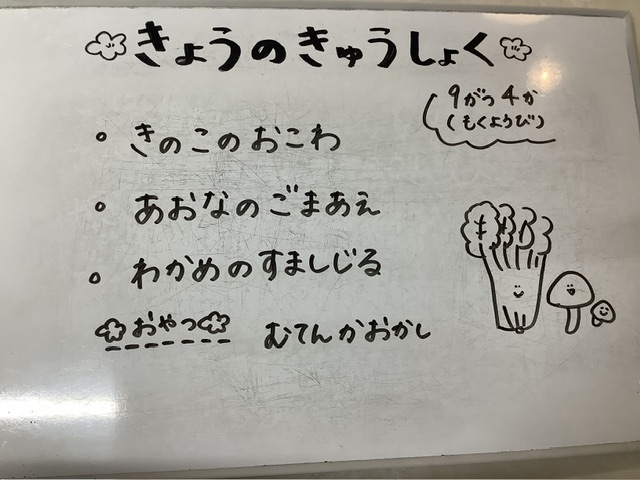 きょうのきゅうしょく
9がつ4か
(もくようび)
・きのこのおこわ
・あおなのごまあえ
・わかめのすましじる
おやつ むてんかおかし